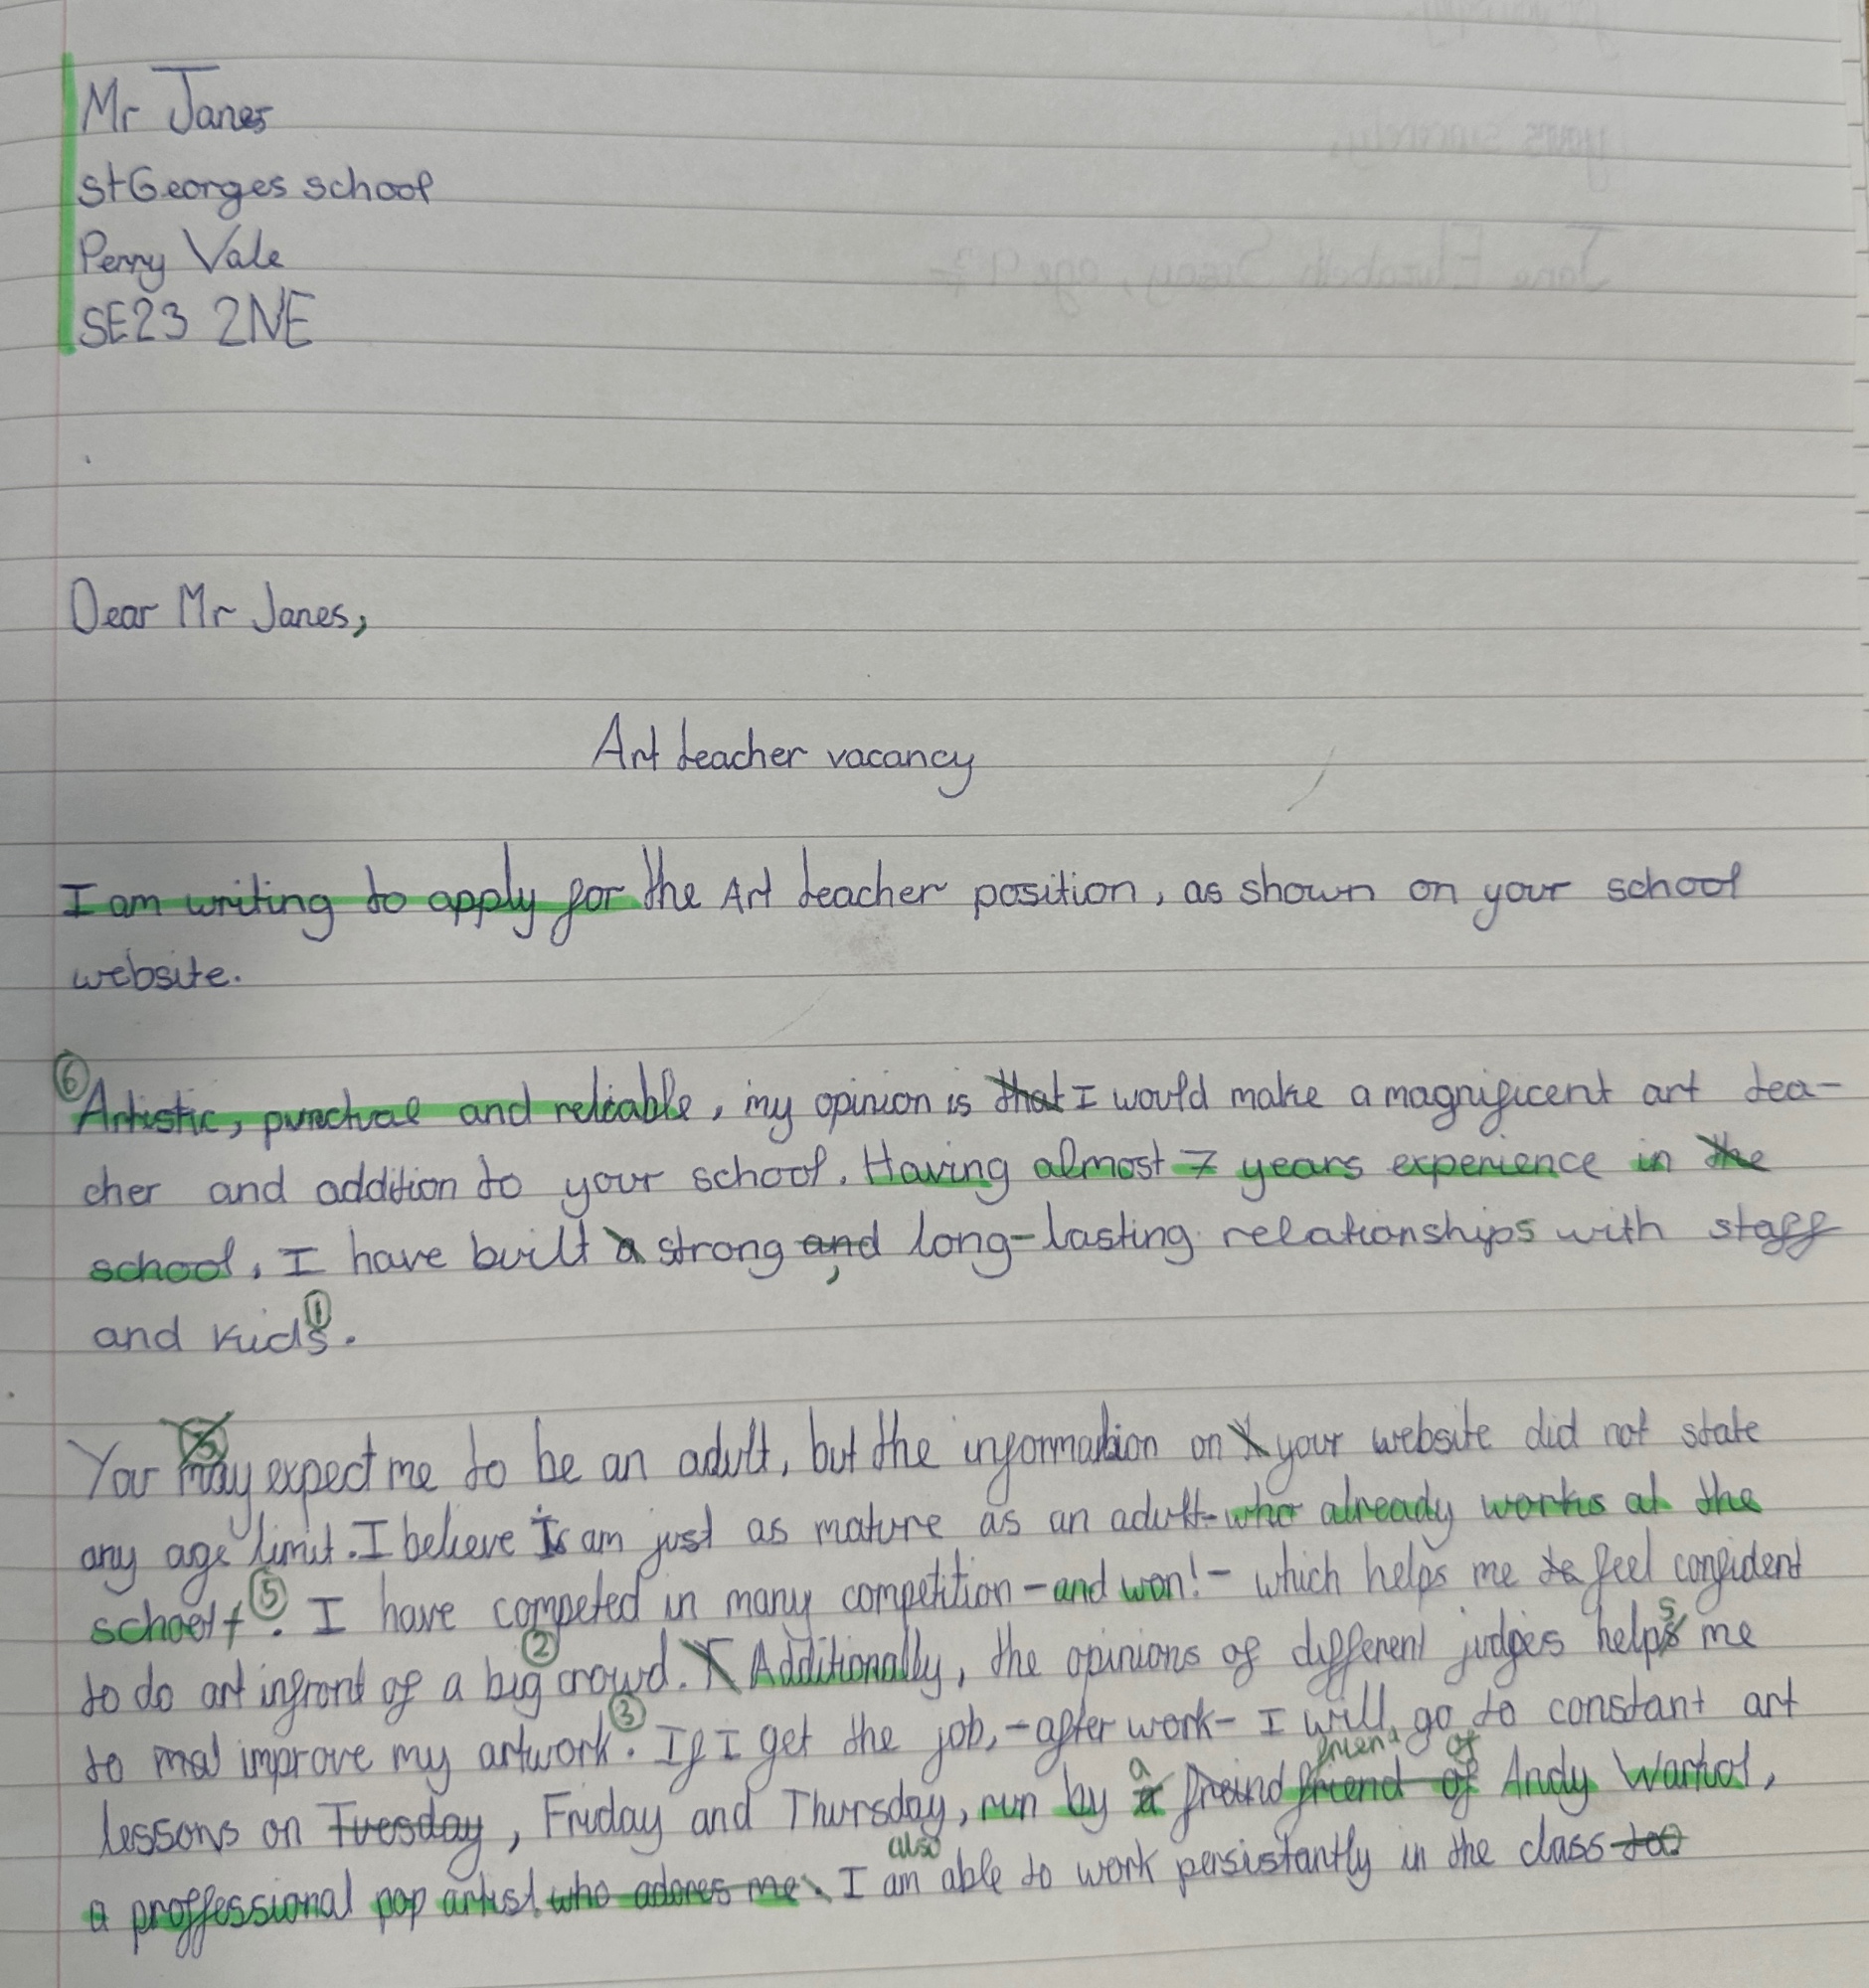 Mr Janes
St Georges school
Perry Vale
SE23 2NE
Dear Mr Janes,
Art teacher vacancy
I am writing to apply for the Art teacher position, as shown on your school
website.
⑥
Artistic, punctual and reliable, my opinion is that I would make a magnificent art tea-
cher and addition to your school. Having almost 7 years experience in the
school, I have built a strong and, long-lasting relationships with staff
and kids①.
You may expect me to be an adult, but the information on your website did not state
any age limit. I believe I am just as mature as an adult who already works at the
school⑤. I have competed in many competition - and won! - which helps me to feel confident
to do art infront of a big② crowd. I Additionally, the opinions of different judges helps me
to improve my artwork③. If I get the job, - after work - I will go to constant art
friend of
lessons on Tuesday, Friday and Thursday, run by a a freind friend of Andy Warhol,
also
a proffessional pop artist who adores me. I am able to work persistantly in the class too
yours sincerely,
Jane Elizabeth age 9